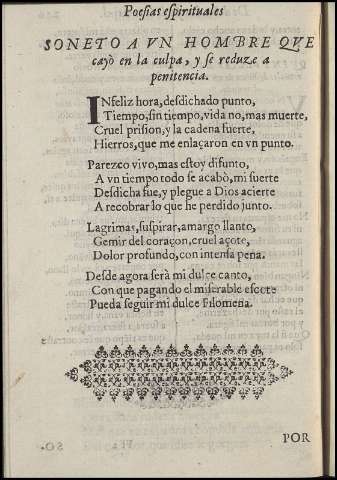 Poesias espirituales
SONETO A VN HOMBRE QVE
cayò en la culpa, y se reduze a
penitencia.
INfeliz hora, desdichado punto,
Tiempo, sin tiempo, vida no, mas muerte,
Cruel prision, y la cadena fuerte,
Hierros, que me enlaçaron en vn punto.
Parezco vivo, mas estoy difunto,
A vn tiempo todo se acabò, mi suerte
Desdicha fue, y plegue a Dios acierte
A recobrar lo que he perdido junto.
Lagrimas, suspirar, amargo llanto,
Gemir del coraçon, cruel açote,
Dolor profundo, con intensa pena.
Desde agora serà mi dulce canto,
Con que pagando el miserable escote
Pueda seguir mi dulce Filomena.
POR